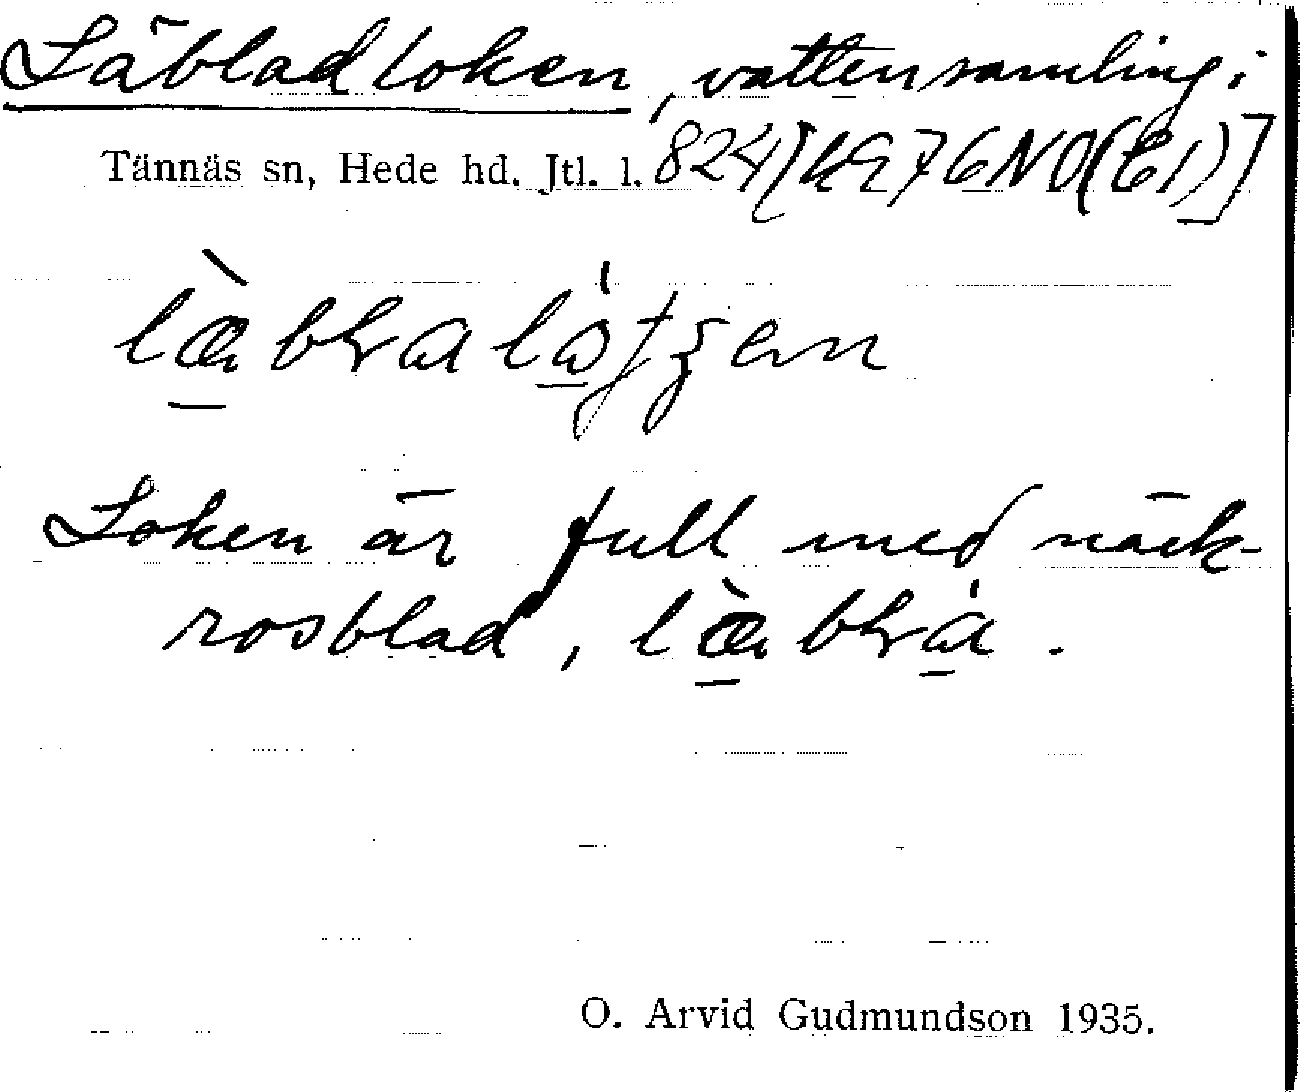 Läbladloken, vattensamling i
Tännäs sn, Hede hd. Jtl. l. 824 [k976NO(E1)]
Loken är full med näck-
rosblad,
O. Arvid Gudmundson 1935.